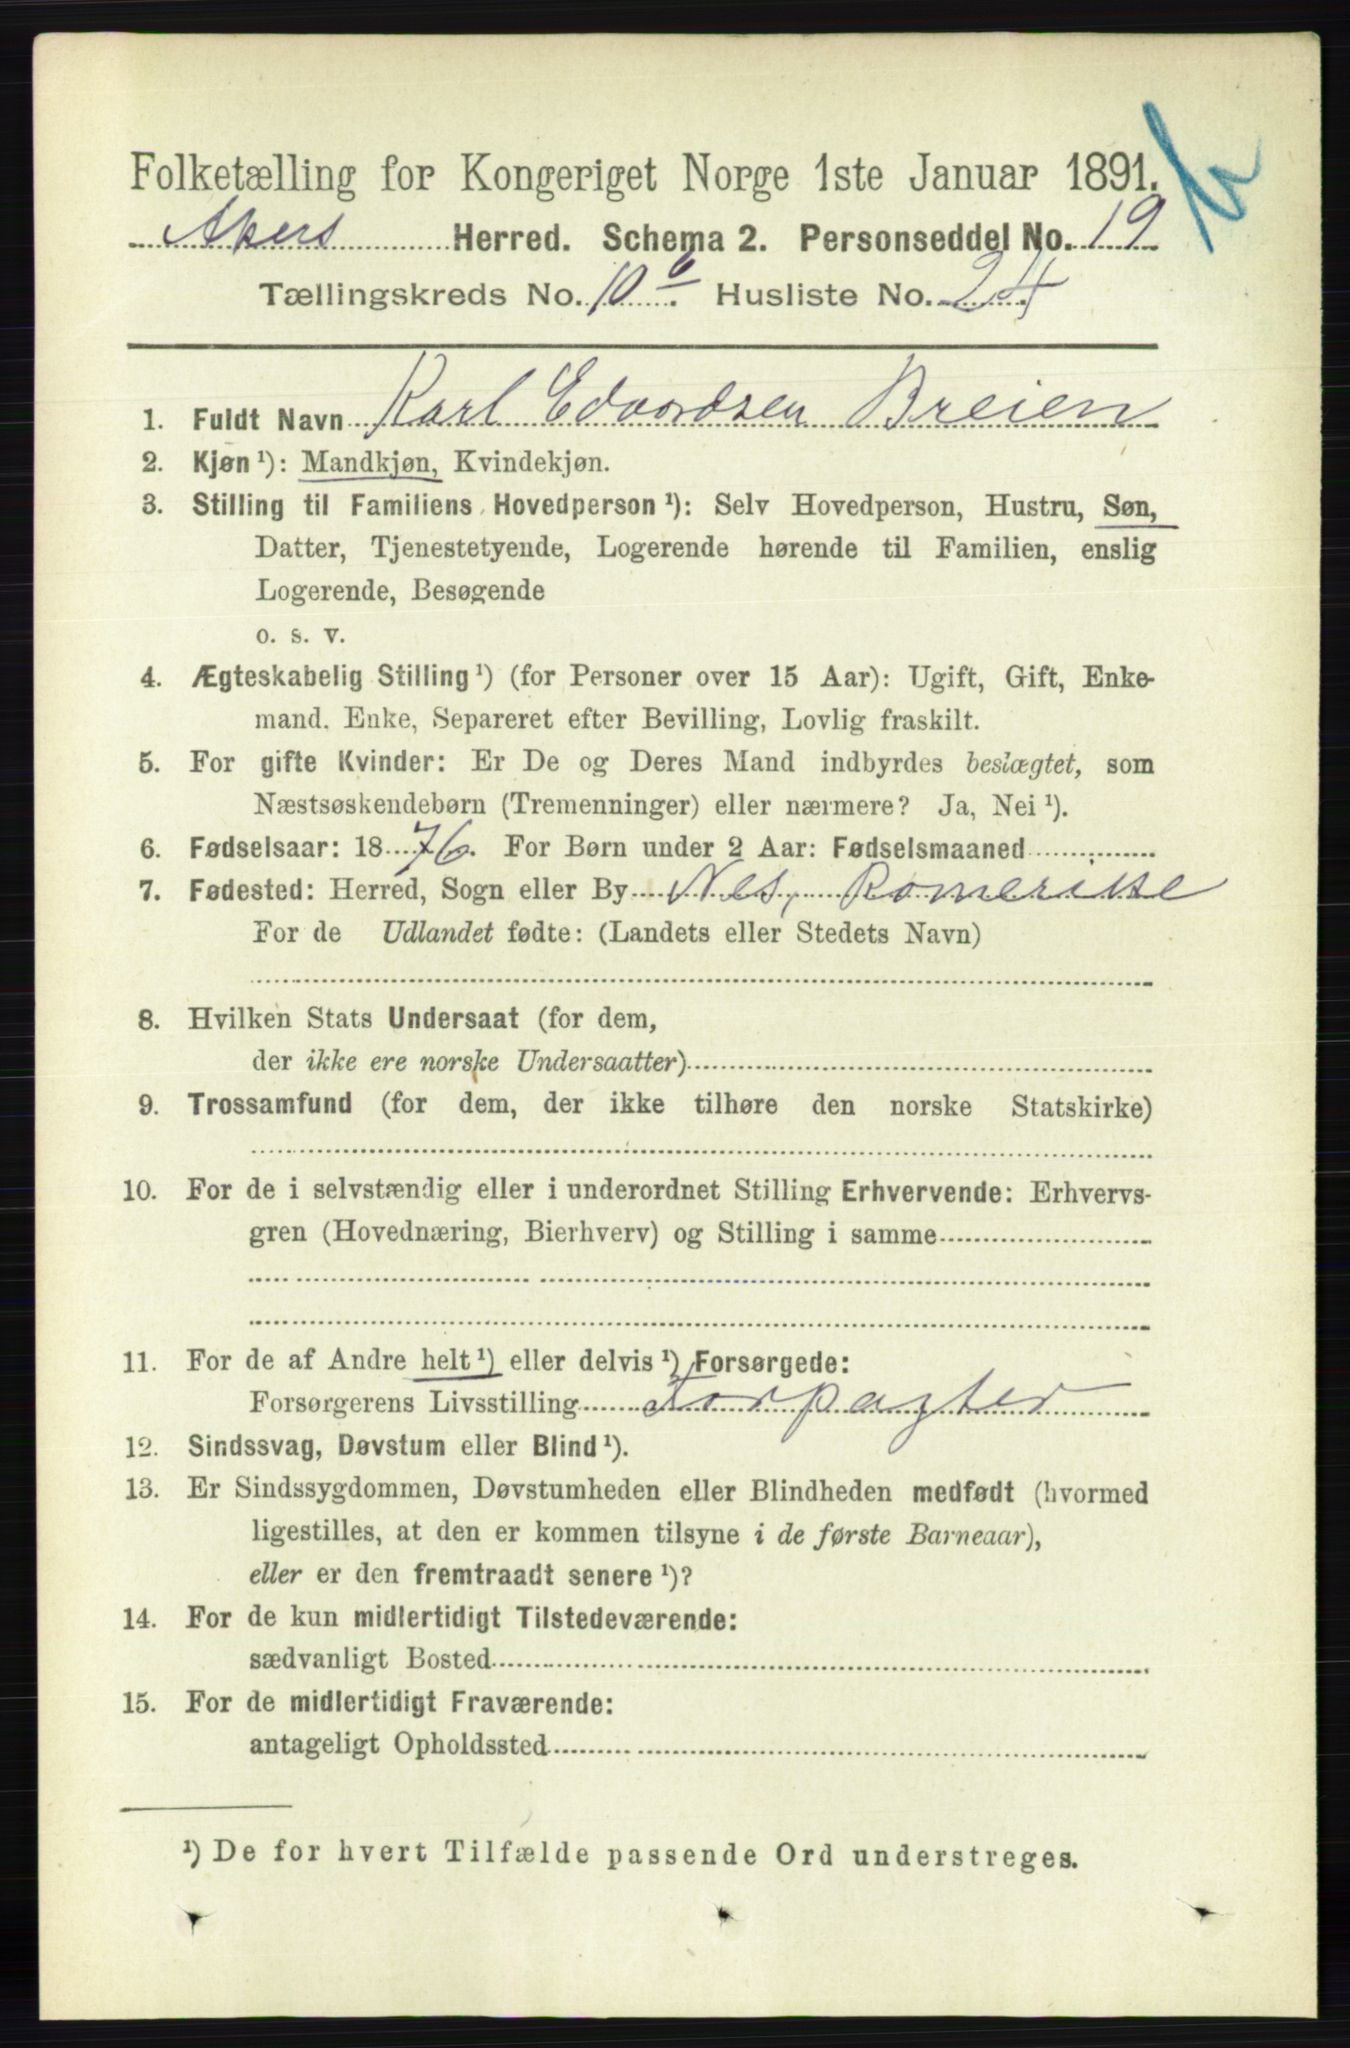 Folketælling for Kongeriget Norge 1ste Januar 1891.
Akers Herred. Schema 2. Personseddel No. 19
Tællingskreds No. 10 b. Husliste No. 24
1. Fuldt Navn Karl Edvardsen Breien
2. Kjøn ¹): Mandkjøn, Kvindekjøn.
3. Stilling til Familiens Hovedperson ¹): Selv Hovedperson, Hustru, Søn,
Datter, Tjenestetyende, Logerende hørende til Familien, enslig
Logerende, Besøgende
o. s. v.
4. Ægteskabelig Stilling ¹) (for Personer over 15 Aar): Ugift, Gift, Enke-
mand, Enke, Separeret efter Bevilling, Lovlig fraskilt.
5. For gifte Kvinder: Er De og Deres Mand indbyrdes beslægtet, som
Næstsøskendebørn (Tremenninger) eller nærmere? Ja, Nei ¹).
6. Fødselsaar: 1876. For Børn under 2 Aar: Fødselsmaaned
7. Fødested: Herred, Sogn eller By Nes, Romerike
For de Udlandet fødte: (Landets eller Stedets Navn)
8. Hvilken Stats Undersaat (for dem,
der ikke ere norske Undersaatter)
9. Trossamfund (for dem, der ikke tilhøre den norske Statskirke)
10. For de i selvstændig eller i underordnet Stilling Erhvervende: Erhvervs-
gren (Hovednæring, Bierhverv) og Stilling i samme
11. For de af Andre helt ¹) eller delvis ¹) Forsørgede:
Forsørgerens Livsstilling Forpagter
12. Sindssvag, Døvstum eller Blind ¹).
13. Er Sindssygdommen, Døvstumheden eller Blindheden medfødt (hvormed
ligestilles, at den er kommen tilsyne i de første Barneaar),
eller er den fremtraadt senere ¹)?
14. For de kun midlertidigt Tilstedeværende:
sædvanligt Bosted
15. For de midlertidigt Fraværende:
antageligt Opholdssted
¹) De for hvert Tilfælde passende Ord understreges.